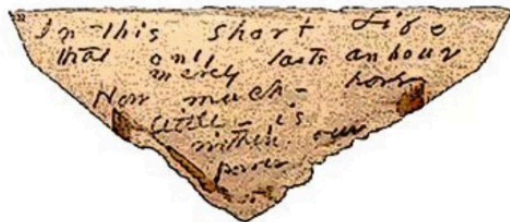 In this short Life
that only lasts an hour
merely
How much - how
little - is
within our
power